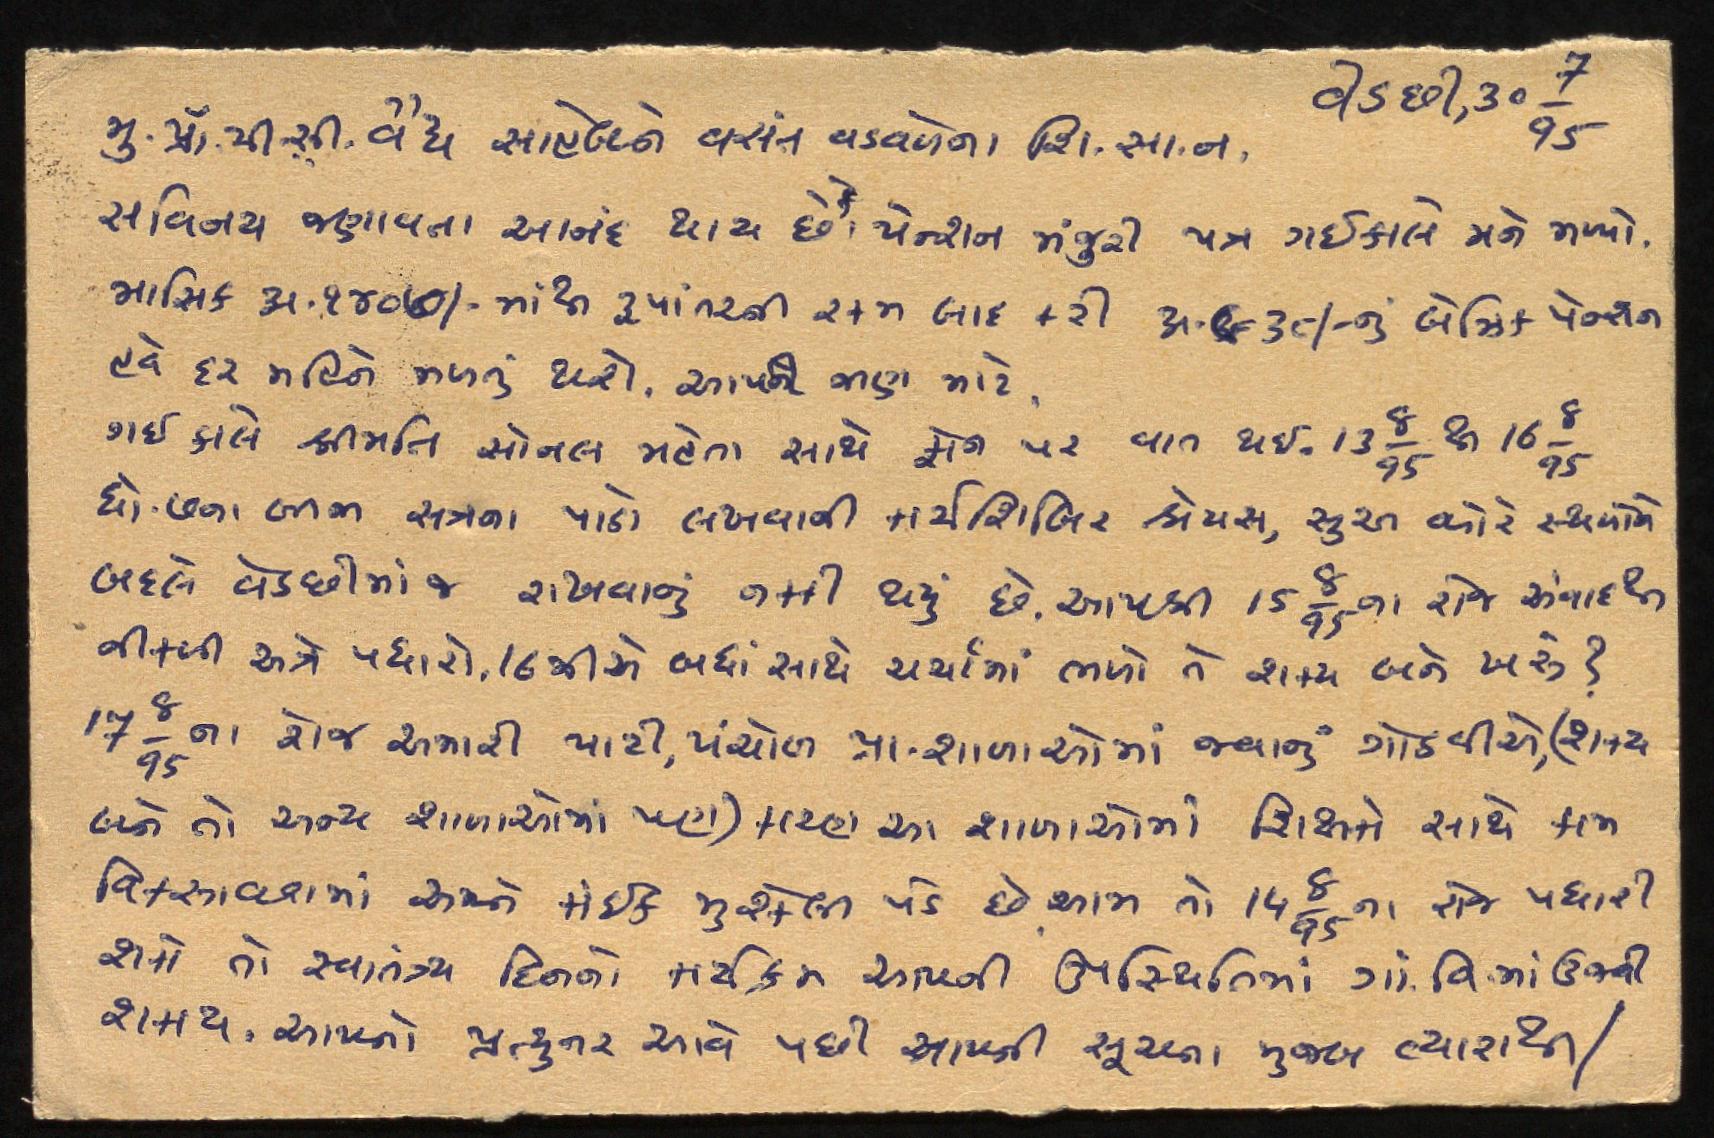 વેડછી, 30 7/95
મુ. પ્રૉ. પી. સી. વૈદ્ય સાહેબને વસંત વડવળેના શિ. સા. ન.
સવિનય જણાવતા આનંદ થાય છે કે પેન્શન મંજુરી પત્ર ગઈકાલે મને મળ્યો.
માસિક રૂ. ૧૪૦૦/- માંથી રૂપાંતરની રકમ બાદ કરી રૂ. ૯૩૮/-નું બેઝિક પેન્શન
હવે દર મહિને મળતું થશે. આપની જાણ માટે.
ગઈ કાલે શ્રીમતિ સોનલ મહેતા સાથે ફોન પર વાત થઈ. 13 8/95 થી 16 8/95
ધો. ૭ના બીજા સત્રના પાઠો લખવાની કાર્યશિબિર શ્રેયસ, સુરત વગેરે સ્થળોને
બદલે વેડછીમાં જ રાખવાનું નક્કી થયું છે. આપશ્રી 15 8/95ના રોજ અ'વાદથી
નીકળી અત્રે પધારો. 16મીએ બધાં સાથે ચર્ચામાં ભળો તે શક્ય બને ખરું?
17 8/95ના રોજ અમારી પાટી, પંચોળ પ્રા. શાળાઓમાં જવાનું ગોઠવીએ, (શક્ય
બને તો અન્ય શાળાઓમાં પણ) કારણ આ શાળાઓમાં શિક્ષકો સાથે કામ
વિકસાવવામાં અમને કંઈક મુશ્કેલી પડે છે. આમ તો 14 8/95ના રોજ પધારી
શકો તો સ્વાતંત્ર્ય દિનનો કાર્યક્રમ આપની ઉપસ્થિતિમાં ગાં. વિ. માં ઉજવી
શકાય. આપનો પ્રત્યુત્તર આવે પછી આપની સૂચના મુજબ ત્યારથી/